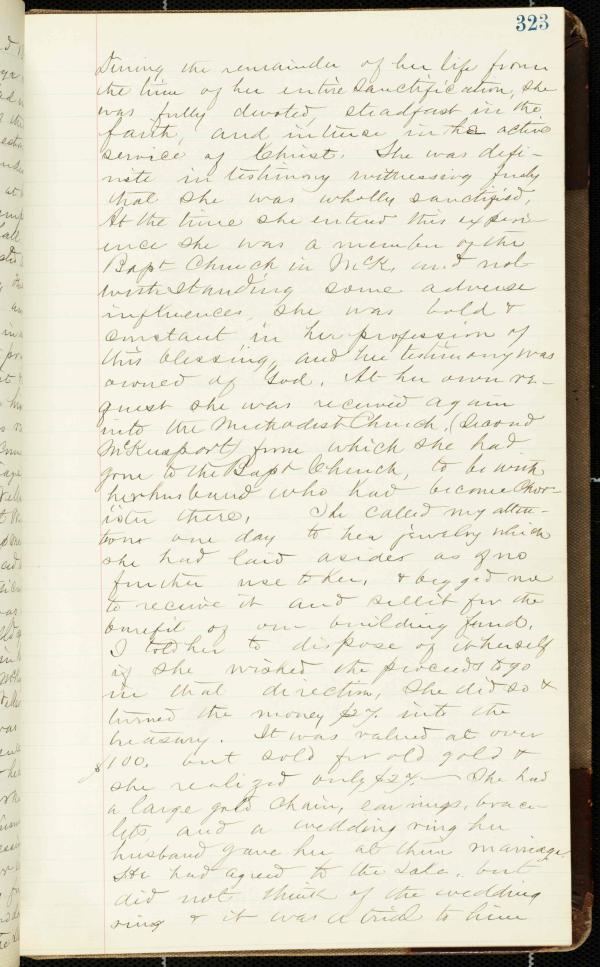 323
During the remainder of her life from
the time of her entire sanctification, she
was fully devoted, steadfast in the
faith, and intense in the active
service of Christ. She was defi-
nite in testimony witnessing freely
that she was wholly sanctified.
At the time she entered this experi-
ence she was a member of the
Bapt Church in McK. and not
withstanding some adverse
influences, she was bold &
constant in her profession of
this blessing, and her testimony was
owned of God. At her own re-
quest she was received again
into the Methodist Church, (Second
McKeesport) from which she had
gone to the Bapt Church, to be with
her husband who had become Chor-
ister there. She called my atten-
tion one day to her jewelry which
she had laid aside as of no
further use to her, & begged me
to receive it and sell it for the
benefit of our building fund.
I told her to dispose of it herself
if she wished the proceeds to go
in that direction, She did so &
turned the money $27. into the
treasury. It was valued at over
$100. but sold for old gold &
she realized only $27.— She had
a large gold chain, earrings, brace-
lets, and a wedding ring her
husband gave her at their marriage.
He had agreed to the sale, but
did not think of the wedding
ring & it was a trial to him